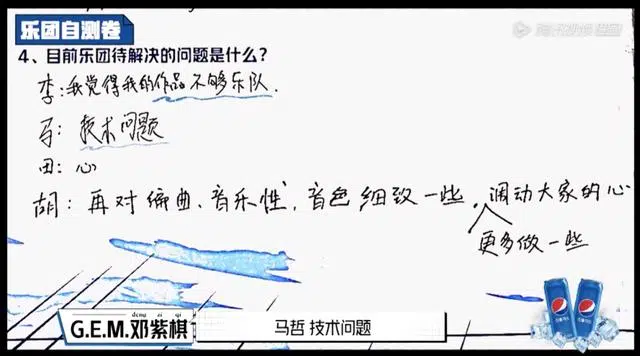 乐团自测卷
腾讯视频
4、目前乐团待解决的问题是什么？
李：我觉得我的作品不够乐队.
马：技术问题
田：心
胡：再对编曲、音乐性、音色细致一些.调动大家的心
更多做一些
dèng zǐ qí
G.E.M.邓紫棋
马哲 技术问题